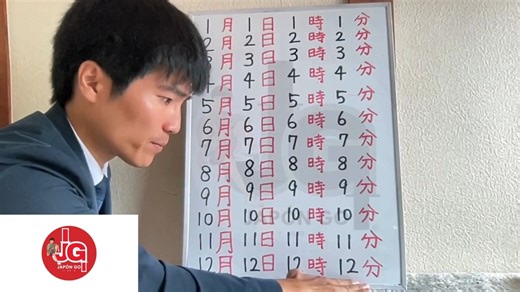 1月1日1時1分
2月2日2時2分
3月3日3時3分
4月4日4時4分
5月5日5時5分
6月6日6時6分
7月7日7時7分
8月8日8時8分
9月9日9時9分
10月10日10時10分
11月11日11時11分
12月12日12時12分
JG
JAPÓN GO
JG
JAPÓN GO